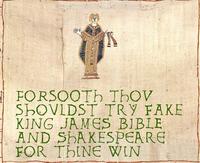 FORSOOTH THOU
SHOULDST TRY FAKE
KING JAMES BIBLE
AND SHAKESPEARE
FOR THINE WIN